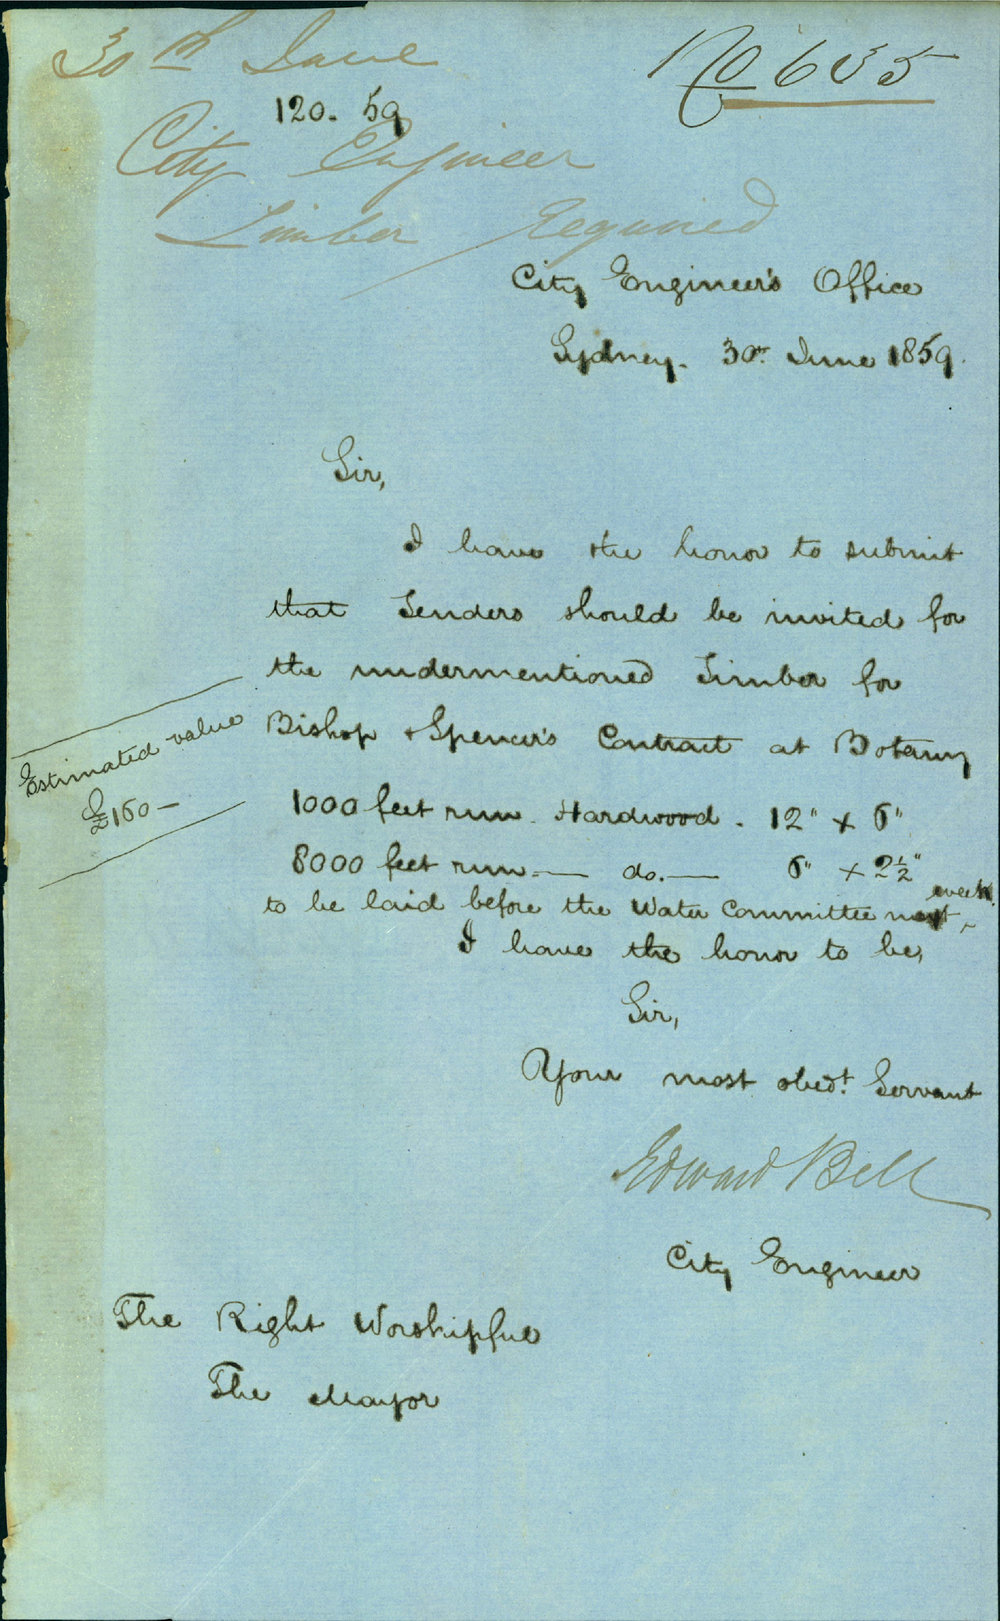 30th June
No 635
120. 59
City Engineer
Timber Required
City Engineer's Office
Sydney. 30th June 1859.
Sir,
I have the honor to submit
that Tenders should be invited for
the undermentioned Timber for
Bishop & Spencer's Contract at Botany
Estimated value
£160 –
1000 feet run. Hardwood. 12" x 6"
8000 feet run. — do. — 6" x 2½"
to be laid before the Water Committee next week.
I have the honor to be,
Sir,
Your most obedt. Servant
Edward Bell
City Engineer
The Right Worshipful
The Mayor